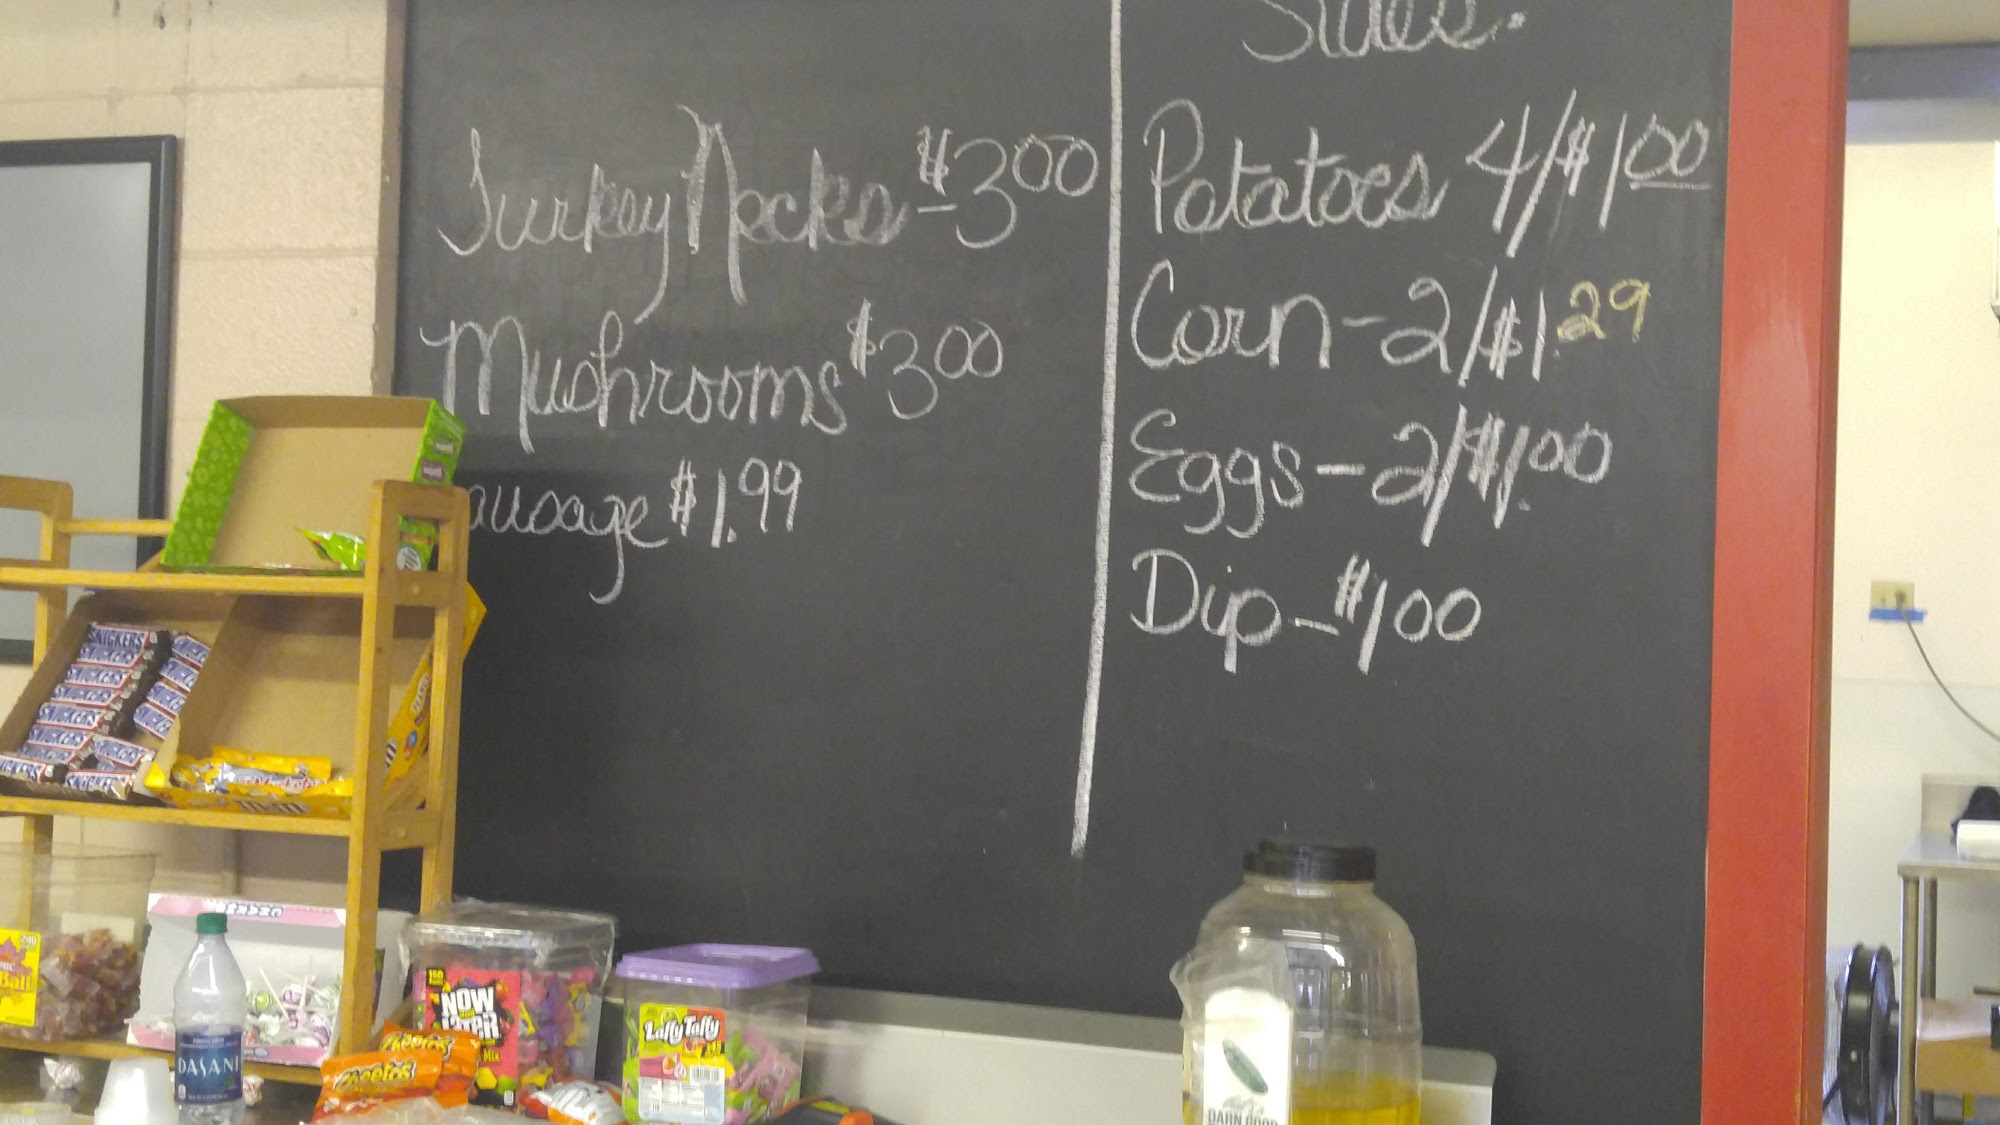 Sides.
Turkey Necks - $3.00
Mushrooms $3.00
Sausage $1.99
Potatoes 4/$1.00
Corn - 2/$1.29
Eggs - 2/$1.00
Dip - $1.00
SNICKERS
SNICKERS
SNICKERS
SNICKERS
NOW
and
LATER
Mix
Laffy Taffy
Cheetos
Cheetos
DASANI
240
Ball
150
145
DARN GOOD